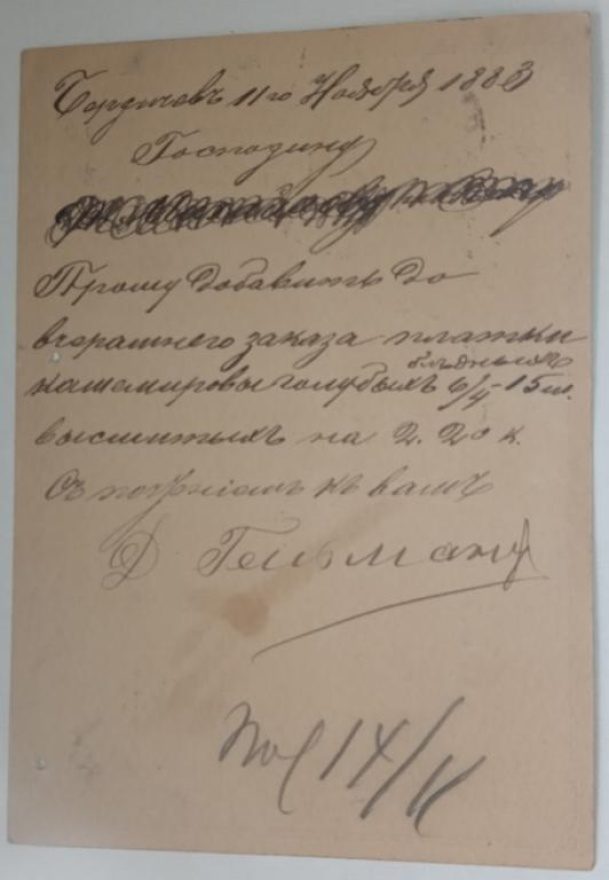 Бердичевъ 11го Ноября 1883
Господину
Прошу добавить до
вчерашнего заказа платки
кашемировы голубыхъ блѣдныхъ 6/4 - 15 ш.
на 2. 20 к.
Съ почтеніемъ къ вамъ
Д Гельманъ
14/11